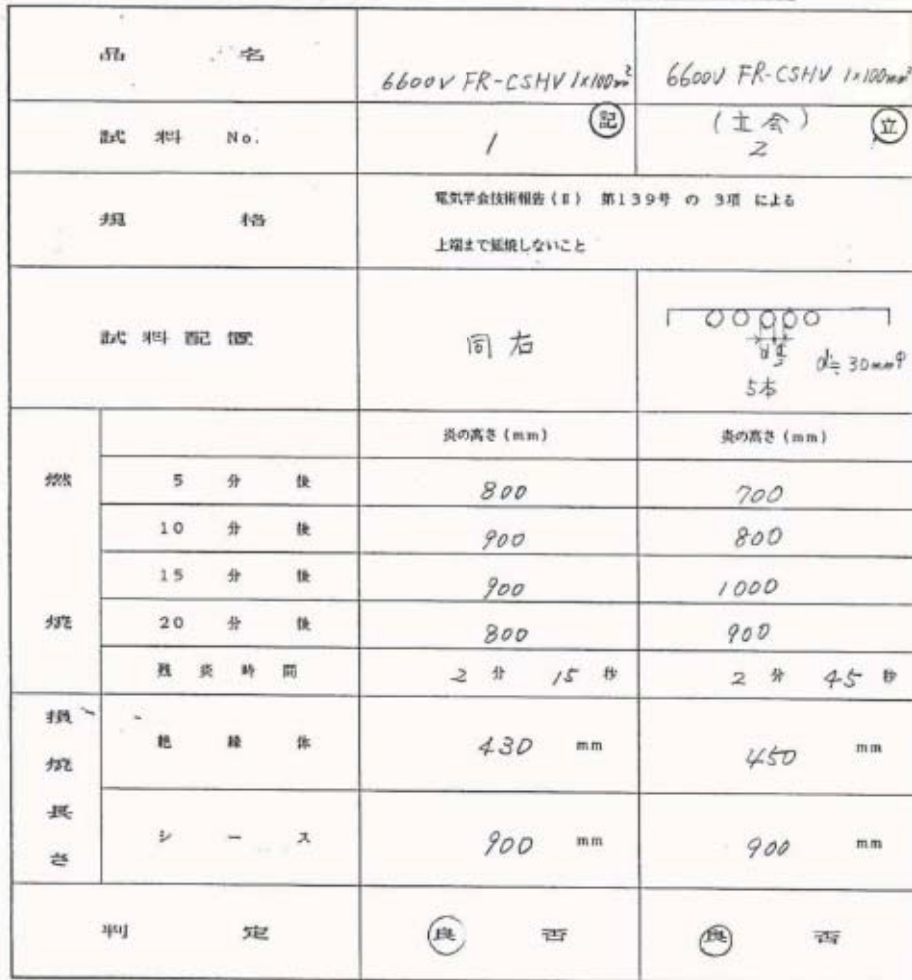 品 名 6600V FR-CSHV 1×100mm² 6600V FR-CSHV 1×100mm²
試 料 No. 1 記 (立会) 2 立
規 格 電気学会技術報告(Ⅱ) 第139号 の 3項 による
上端まで延焼しないこと
試 料 配 置 同右 d d/2 d≒30mmφ
5本
炎の高さ(mm) 炎の高さ(mm)
燃 焼
5 分 後 800 700
10 分 後 900 800
15 分 後 900 1000
20 分 後 800 900
残 炎 時 間 2 分 15 秒 2 分 45 秒
損 焼 長 さ
絶 縁 体 430 mm 450 mm
シ ー ス 900 mm 900 mm
判 定 良 否 良 否